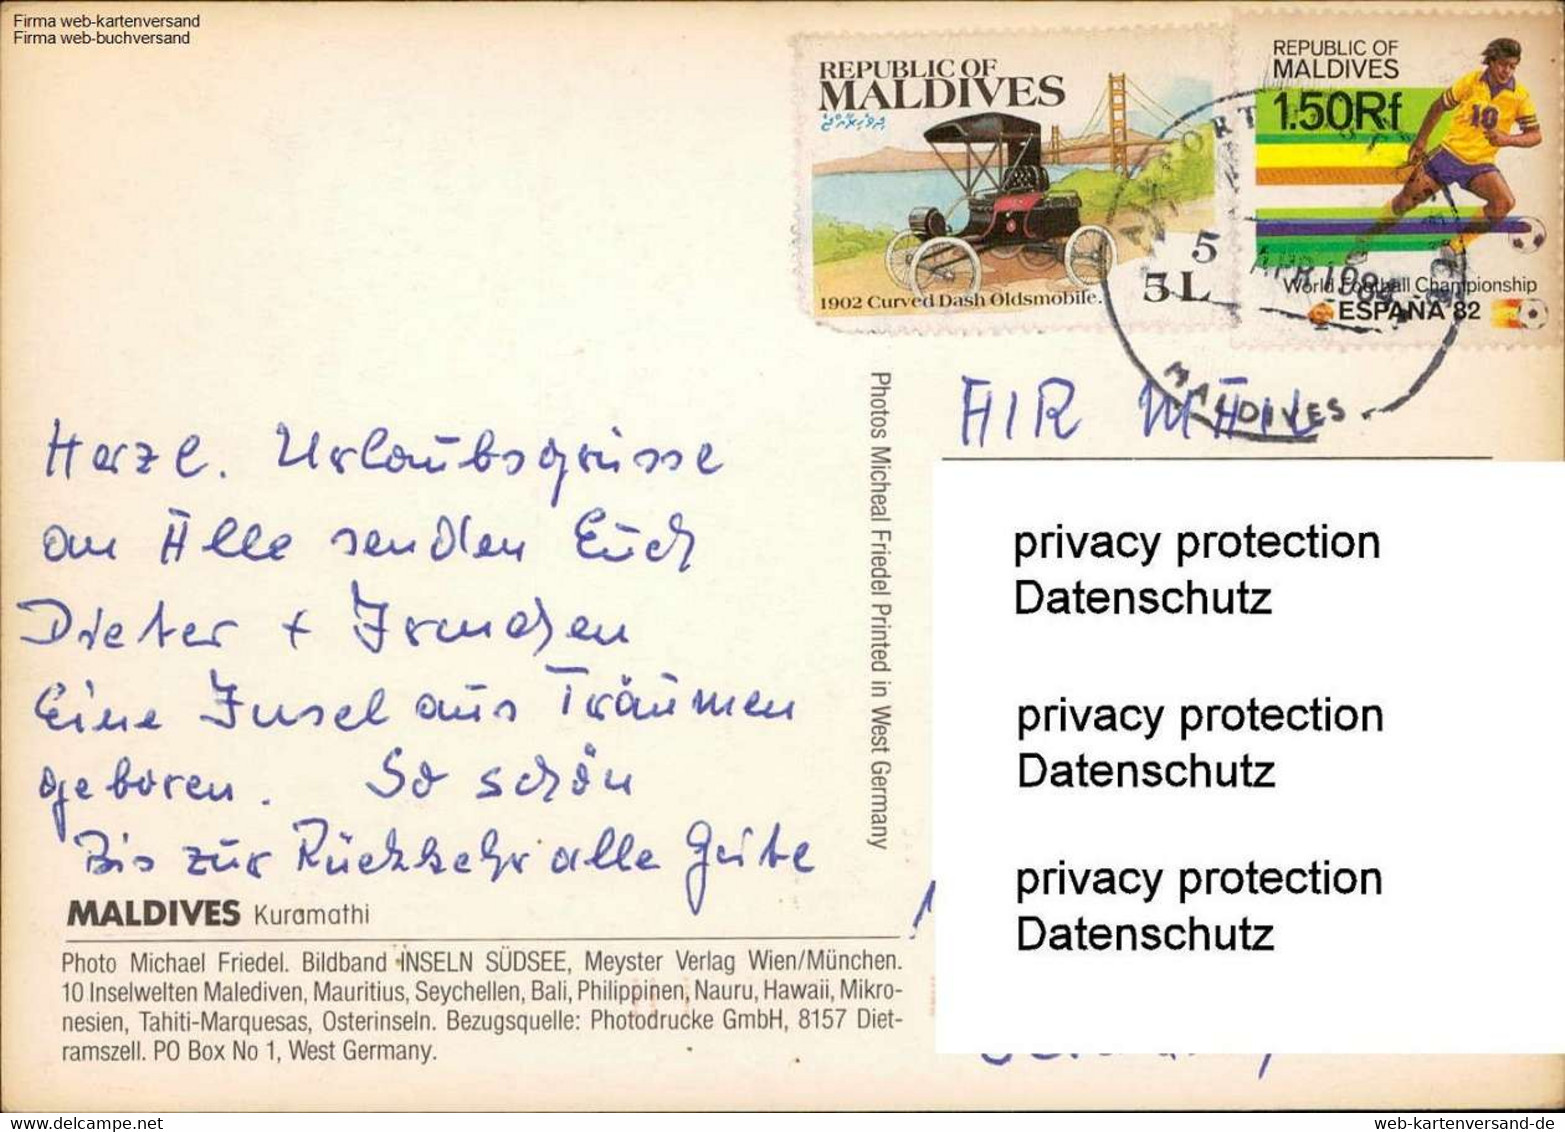 Firma web-kartenversand
Firma web-buchversand
REPUBLIC OF
MALDIVES
1902 Curved Dash Oldsmobile.
5L
REPUBLIC OF
MALDIVES
1.50Rf
10
World Football Championship
ESPAÑA 82
AIRPORT
5
APR 198
MALDIVES
AIR MAIL
Herzl. Urlaubsgrüsse
an Alle senden Euch
Dieter + Irmchen
Eine Insel aus Träumen
geboren. So schön
Bis zur Rückkehr alle Gute
MALDIVES Kuramathi
Photo Michael Friedel. Bildband INSELN SÜDSEE, Meyster Verlag Wien/München.
10 Inselwelten Malediven, Mauritius, Seychellen, Bali, Philippinen, Nauru, Hawaii, Mikro-
nesien, Tahiti-Marquesas, Osterinseln. Bezugsquelle: Photodrucke GmbH, 8157 Diet-
ramszell. PO Box No 1, West Germany.
Photos Micheal Friedel Printed in West Germany
privacy protection
Datenschutz
privacy protection
Datenschutz
privacy protection
Datenschutz
web-kartenversand-de